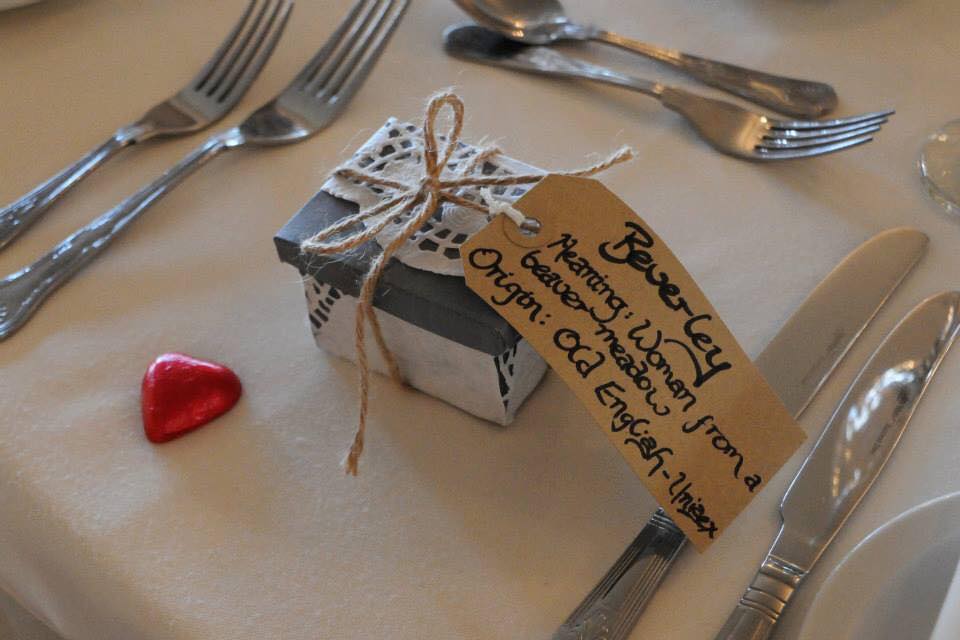 Beverley
Meaning: Woman from a
beaver-meadow
Origin: Old English-Unisex